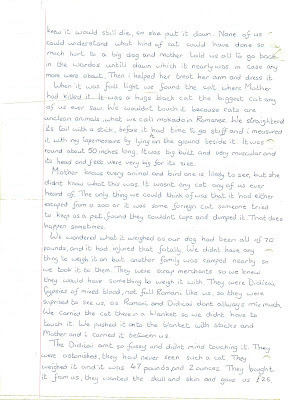 knew it would still die, so she put it down. None of us
could understand what kind of cat could have done so
much hurt to a big dog and Mother told us all to go back
in the wardos until dawn which it nearly was in case any
more were about. Then I helped her treat her arm and dress it.
When it was full light we found the cat where Mother
had killed it. It was a huge black cat the biggest cat any
of us ever saw. We wouldnt touch it because cats are
unclean animals, what we call mokado in Romanes. We straightend
its tail with a stick, before it had time to go stiff and i measured
it with my tapemeasure by lying on the ground beside it. It was
round about 50 inches long. It was big built and very muscular and
its head and feet were very big for its size.
Mother knows every animal and bird one is likely to see, but she
didnt know what this was. It wasnt any cat any of us ever
heard of. The only thing we could think of was that it had either
escaped from a zoo or it was some foreign cat someone tried
to keep as a pet, found they couldnt cope and dumped it. That does
happen sometimes.
We wondered what it weighed as our dog had been all of 70
pounds, and it had injured that fatally. We didnt have any
thing to weigh it on but another family was camped nearby so
we took it to them. They were scrap merchants so we knew
they would have something to weigh it with. They were Didicai,
Gypsies of mixed blood, not full Romani like us, so they were
suprised to see us, as Romani and Didicai dont always mix much.
We carried the cat there in a blanket so we didnt have to
touch it. We pushed it onto the blanket with sticks and
Mother and i carried it between us.
The Didicai arnt so fussy and didnt mind touching it. They
were astonished, they had never seen such a cat. They
weighed it and it was 47 pounds and 2 ounces. They bought
it from us, they wanted the skull and skin and gave us £25.